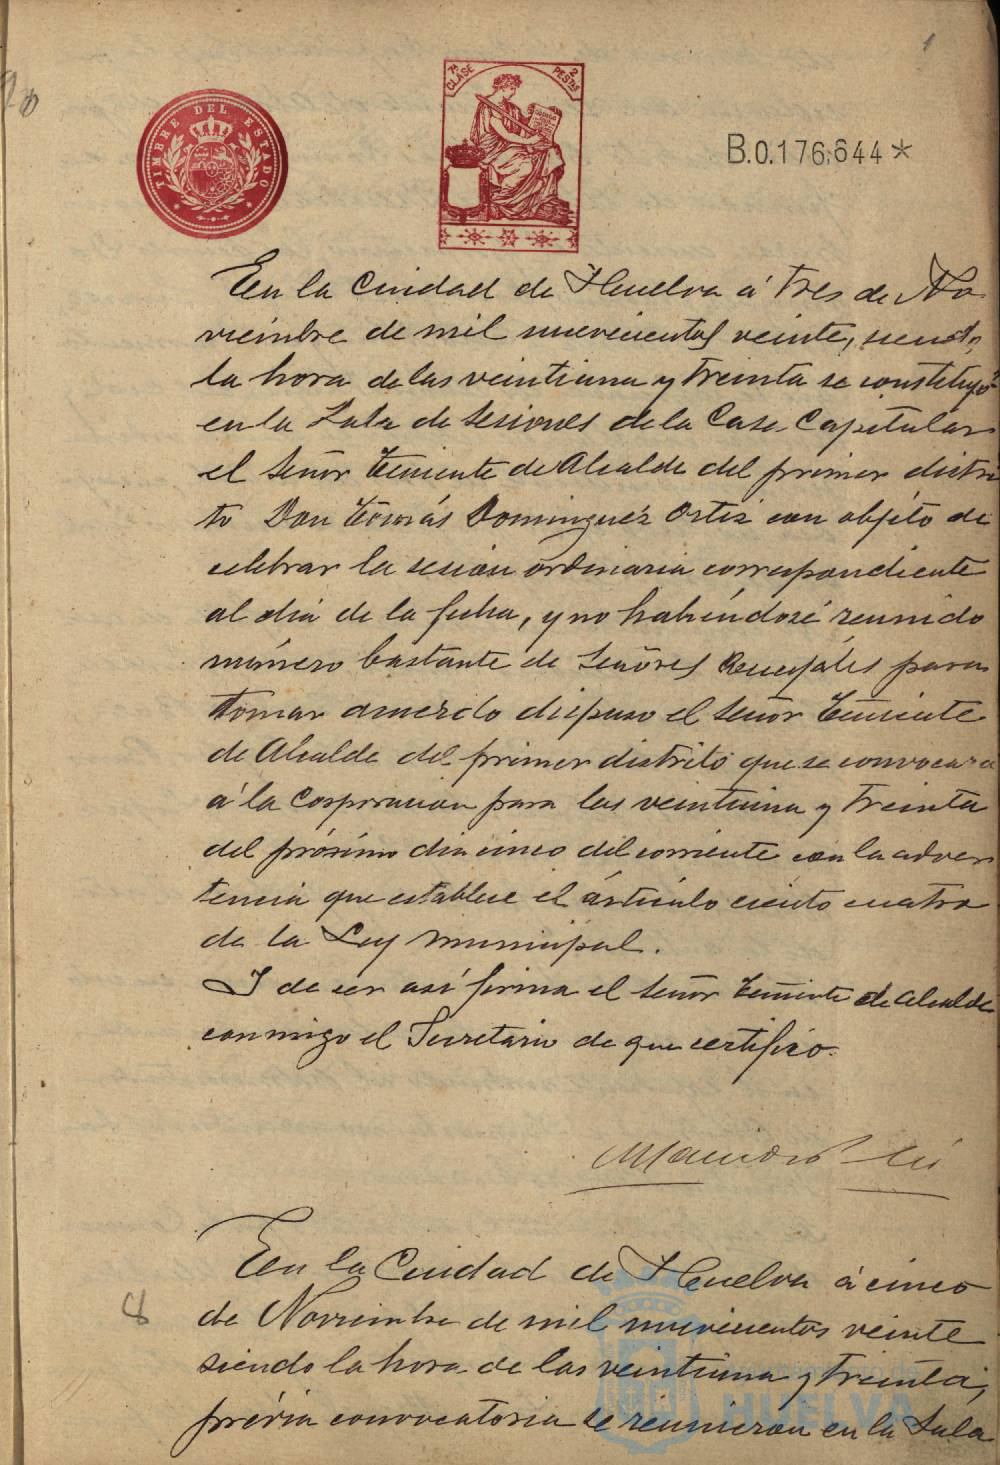 1
TIMBRE DEL ESTADO
7ª CLASE 2 PESTAS
B.0.176.644*
En la Ciudad de Huelva á tres de No
viembre de mil novecientos veinte, siendo
la hora de las veintiuna y treinta se constituyó
en la Sala de Sesiones de la Casa Capitular
el Señor Teniente de Alcalde del primer distri
to Don Tomás Dominguez Ortiz con objéto de
celebrar la sesión ordinaria correspondiente
al dia de la fecha, y no habiéndose reunido
número bastante de Señores Concejáles para
tomar acuerdo dispuso el Señor Teniente
de Alcalde del primer distrito que se convocara
á la Corporacion para las veintiuna y treinta
del próximo dia cinco del corriente con la adver
tencia que establece el árticulo ciento cuatro
de la Ley Municipal.
Y de ser así firma el Señor Teniente de Alcalde
conmigo el Secretario de que certifico.
En la Ciudad de Huelva á cinco
8
de Noviembre de mil novecientos veinte
siendo la hora de las veintiuna y treinta,
prévia convocatoria se reunieron en la Sala
HUELVA